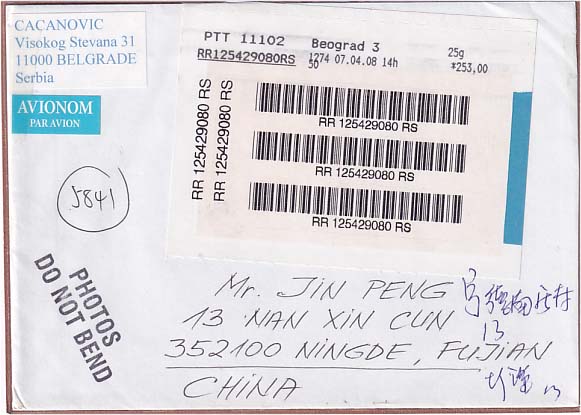 CACANOVIC
Visokog Stevana 31
11000 BELGRADE
Serbia
AVIONOM
PAR AVION
PTT 11102 Beograd 3 25g
RR125429080RS 1274 07.04.08 14h *253,00
50
RR 125429080 RS
RR 125429080 RS
RR 125429080 RS
RR 125429080 RS
RR 125429080 RS
5841
PHOTOS
DO NOT BEND
Mr. JIN PENG
13 NAN XIN CUN
13
352100 NINGDE, FUJIAN
CHINA
13